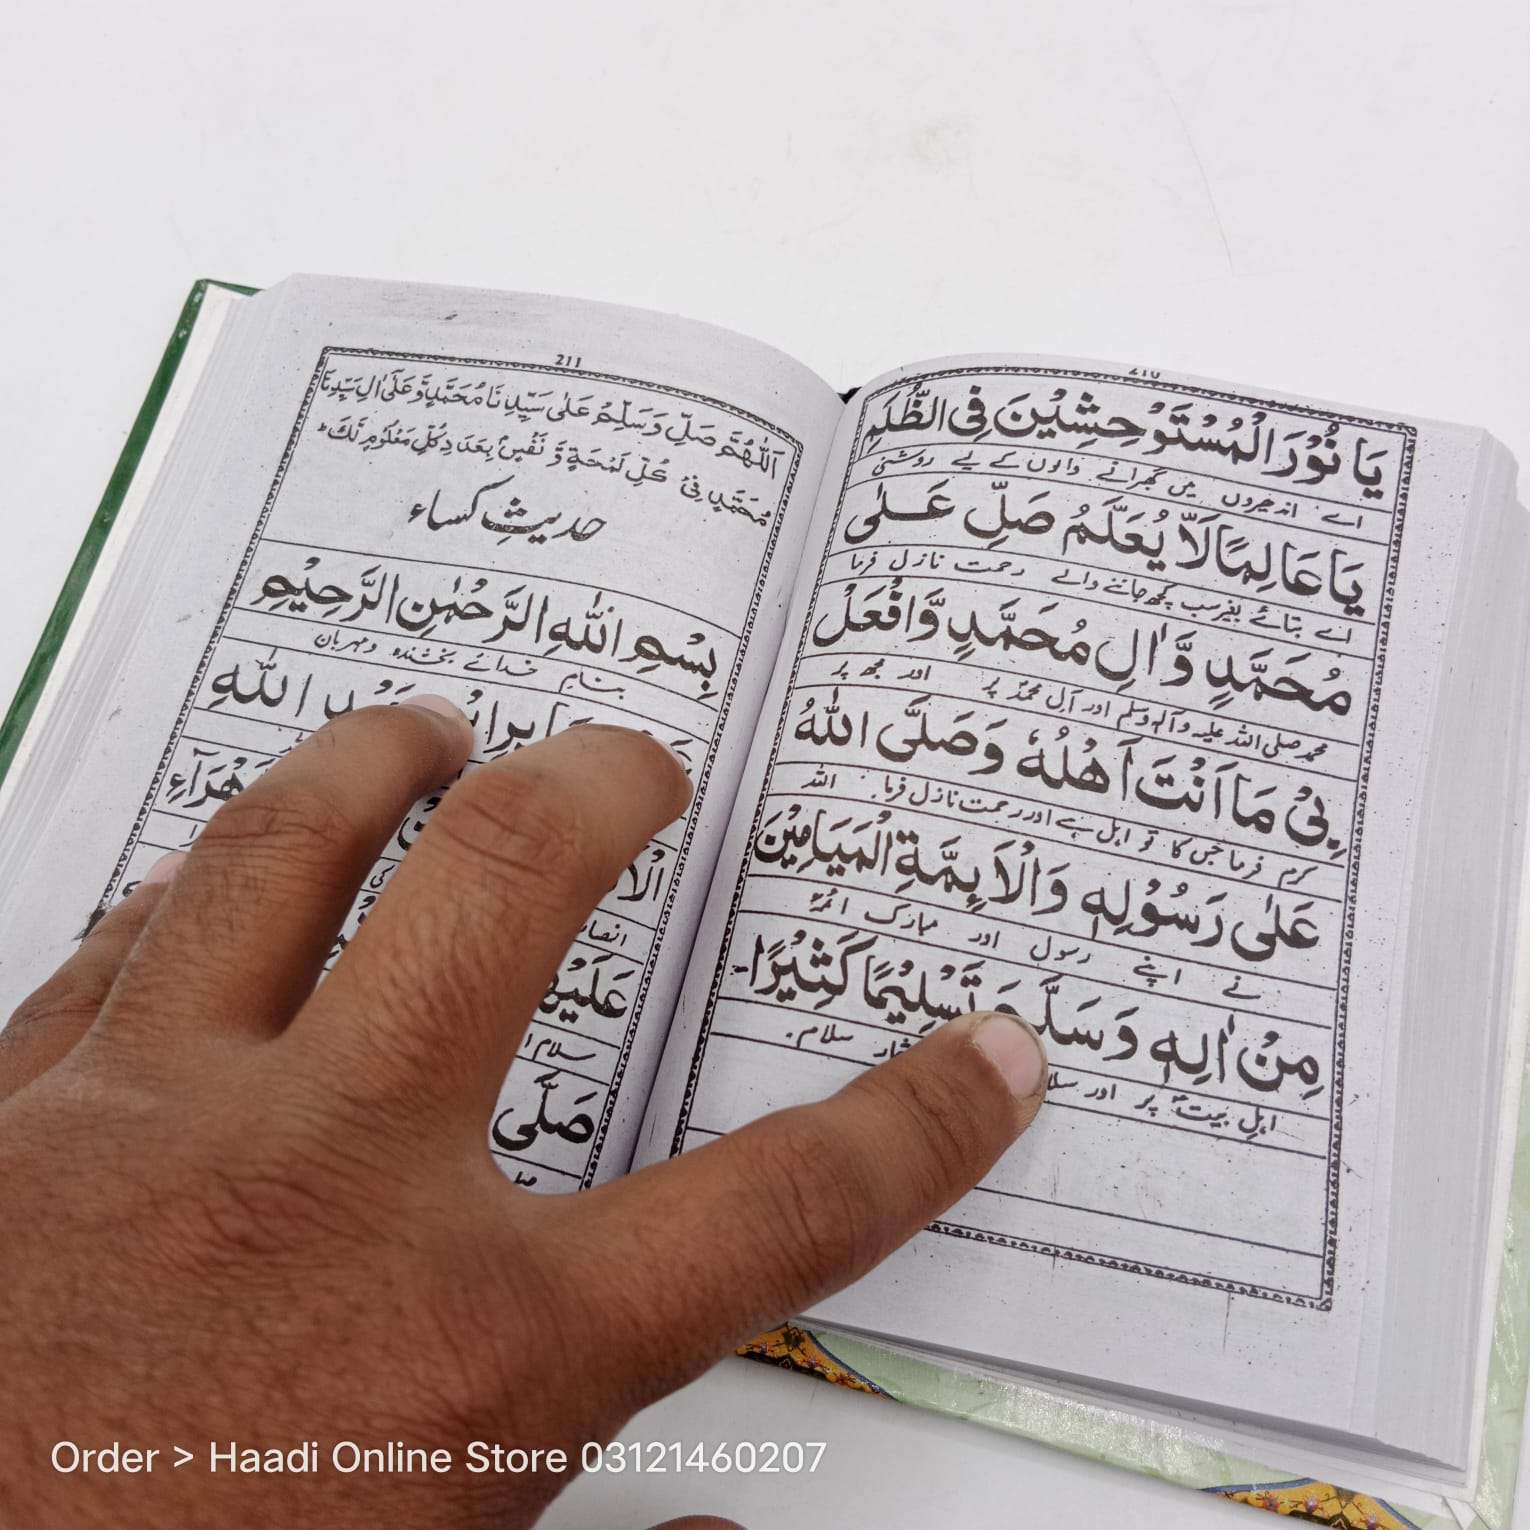 210
يَا نُوْرَ الْمُسْتَوْحِشِيْنَ فِى الظُّلَمِ
اے اندھیروں میں گھبرانے والوں کے لیے روشنی
يَا عَالِمًا لَّا يُعَلَّمُ صَلِّ عَلٰى
اے بتائے بغیر سب کچھ جاننے والے رحمت نازل فرما
مُحَمَّدٍ وَّاٰلِ مُحَمَّدٍ وَّافْعَلْ
محمد صلی اللہ علیہ وآلہ وسلم اور آل محمدؐ پر اور مجھ پر
بِىْ مَا اَنْتَ اَهْلُهٗ وَصَلَّى اللّٰهُ
کرم فرما جس کا تو اہل ہے اور رحمت نازل فرما۔ اللہ
عَلٰى رَسُوْلِهٖ وَالْاَئِمَّةِ الْمَيَامِيْنَ
نے اپنے رسول اور مبارک ائمہؑ
مِنْ اٰلِهٖ وَسَلَّمَ تَسْلِيْمًا كَثِيْرًا۔
اہل بیتؑ پر اور سلام۔
211
اَللّٰهُمَّ صَلِّ وَسَلِّمْ عَلٰى سَيِّدِنَا مُحَمَّدٍ وَّعَلٰٓى اٰلِ سَيِّدِنَا
مُحَمَّدٍ فِىْ كُلِّ لَمْحَةٍ وَّ نَفَسٍ بِعَدَدِ كُلِّ مَعْلُوْمٍ لَّكَ
حدیثِ کساء
بِسْمِ اللّٰهِ الرَّحْمٰنِ الرَّحِيْمِ
بنام خدائے بخشندہ و مہربان
اللّٰهِ
عَلَيْهَا
صَلَّى
Order > Haadi Online Store 03121460207